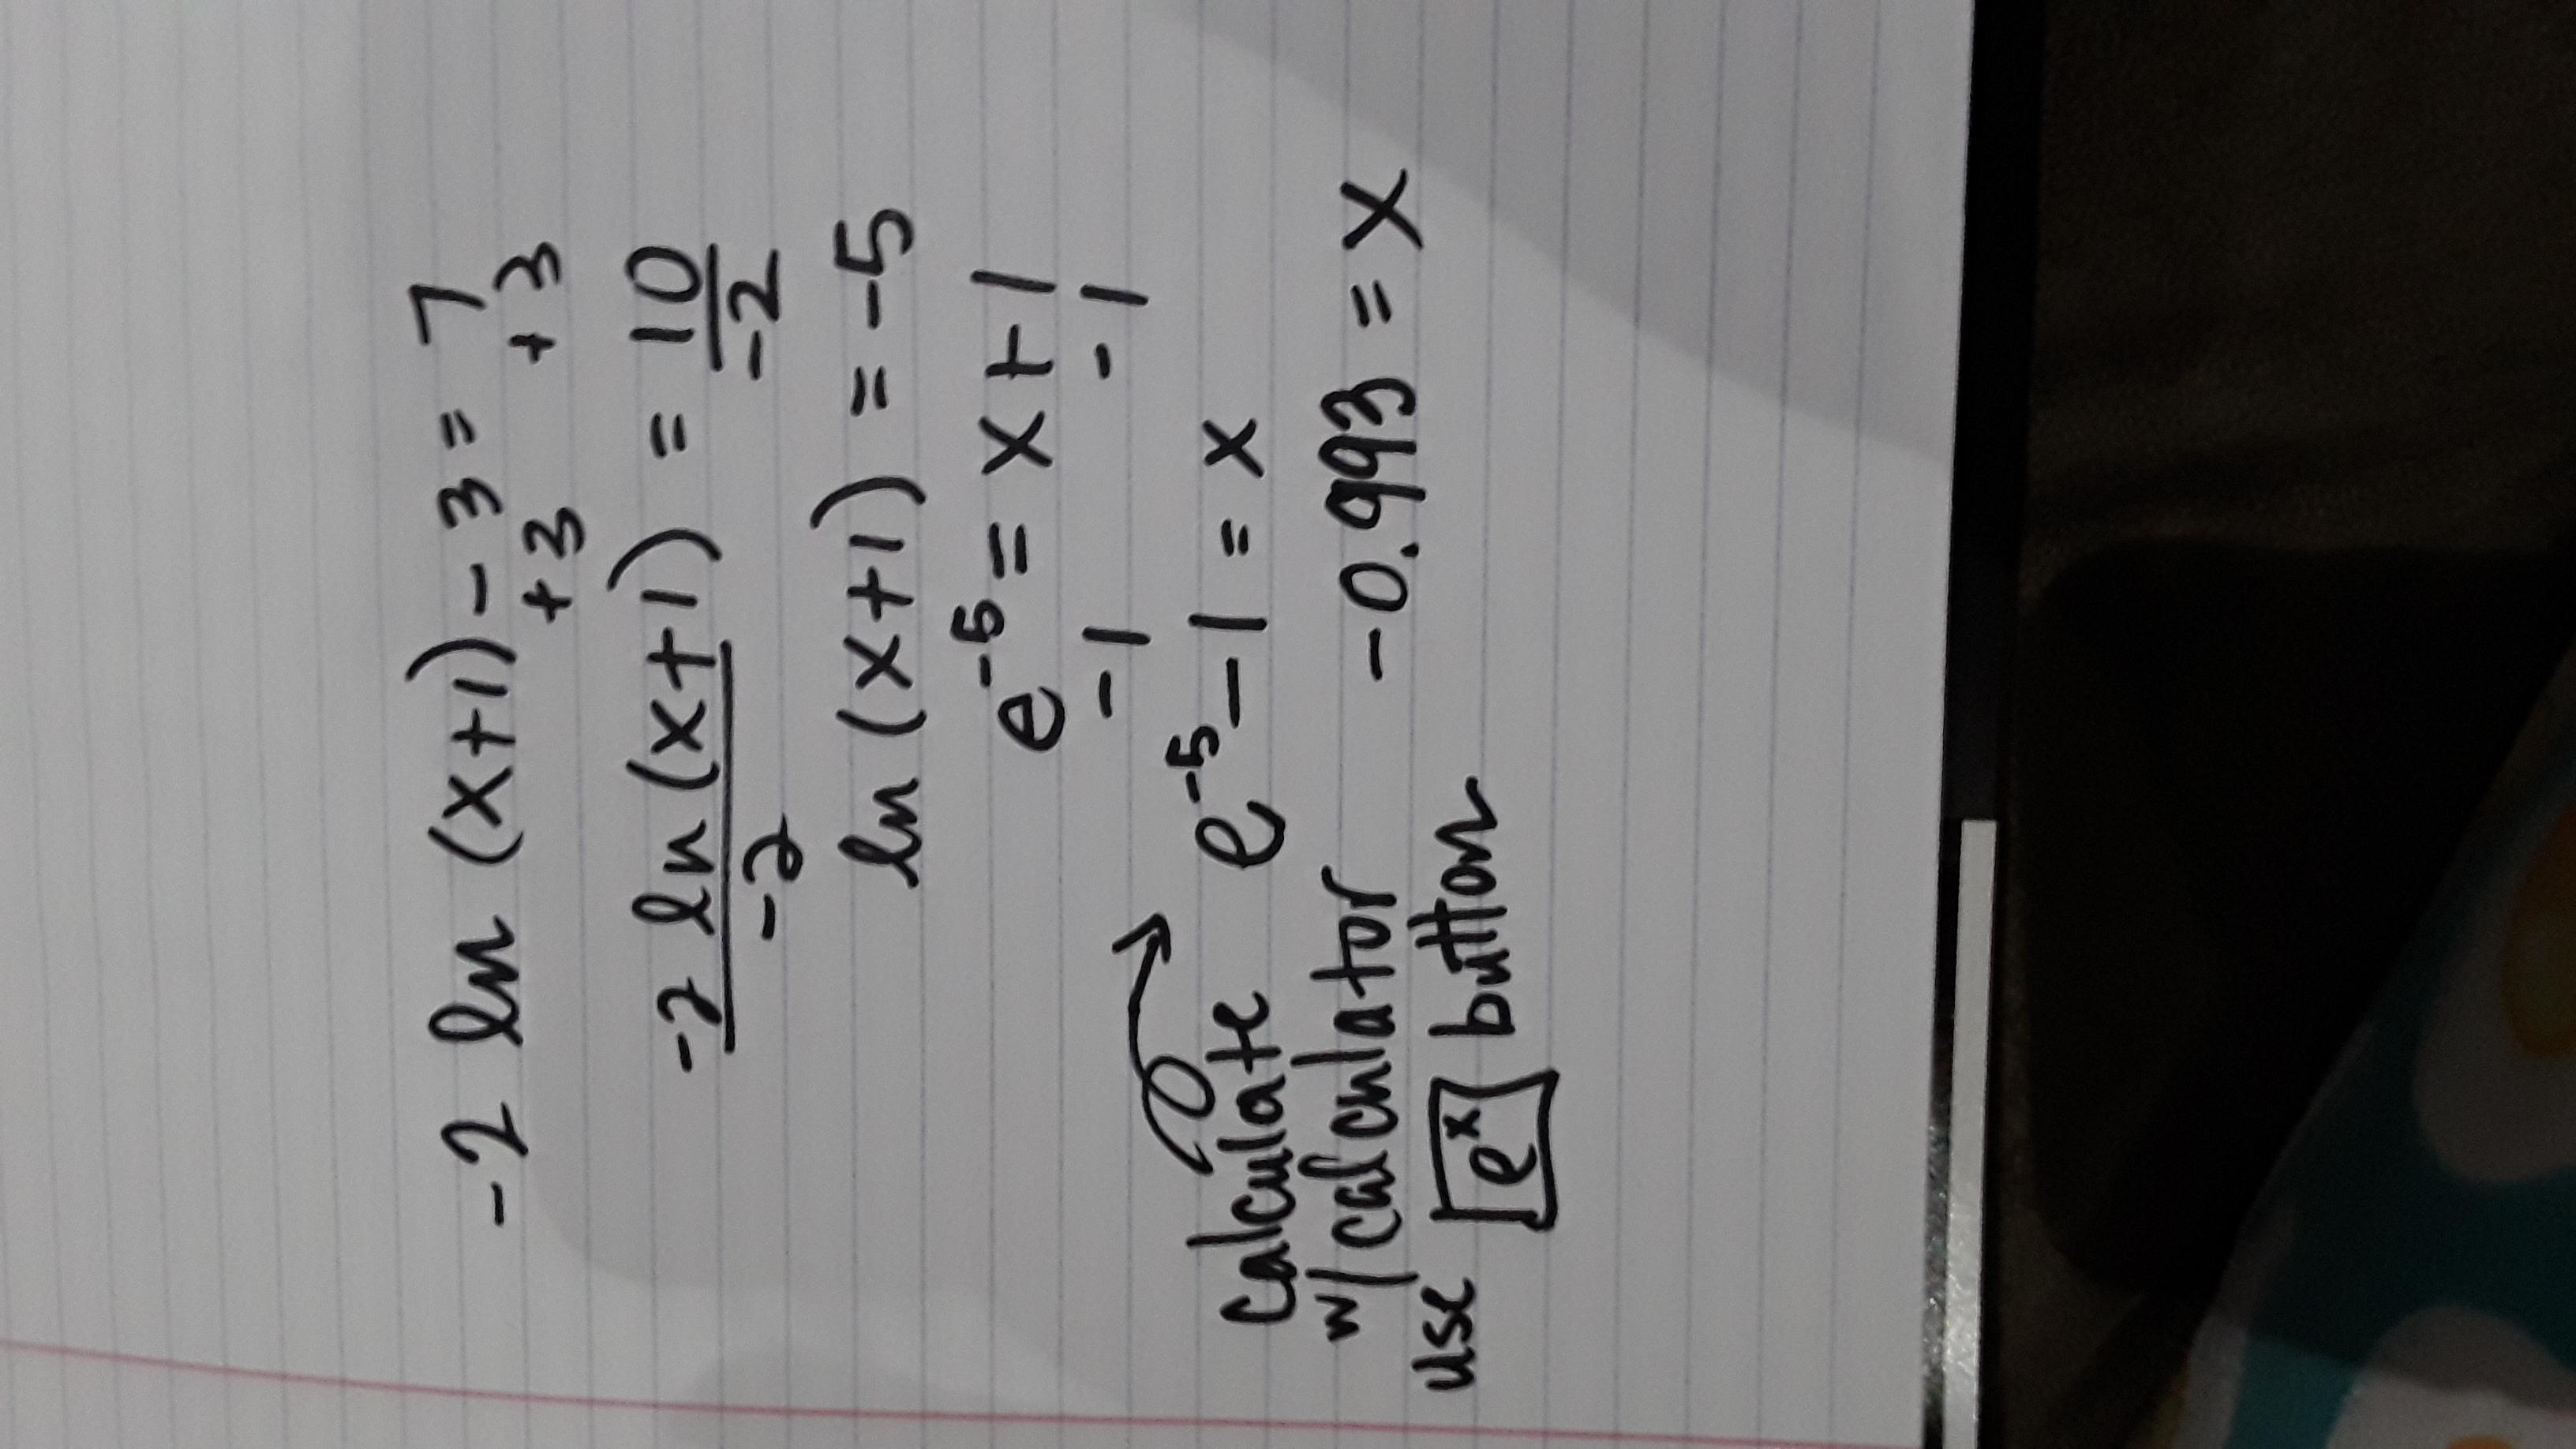 -2 ln (x+1) - 3 = 7
+3 +3
-2 ln (x+1) = 10
-2 -2
ln (x+1) = -5
e⁻⁵ = x + 1
-1 -1
e⁻⁵ - 1 = x
Calculate
w/ calculator
-0.993 = x
use eˣ button